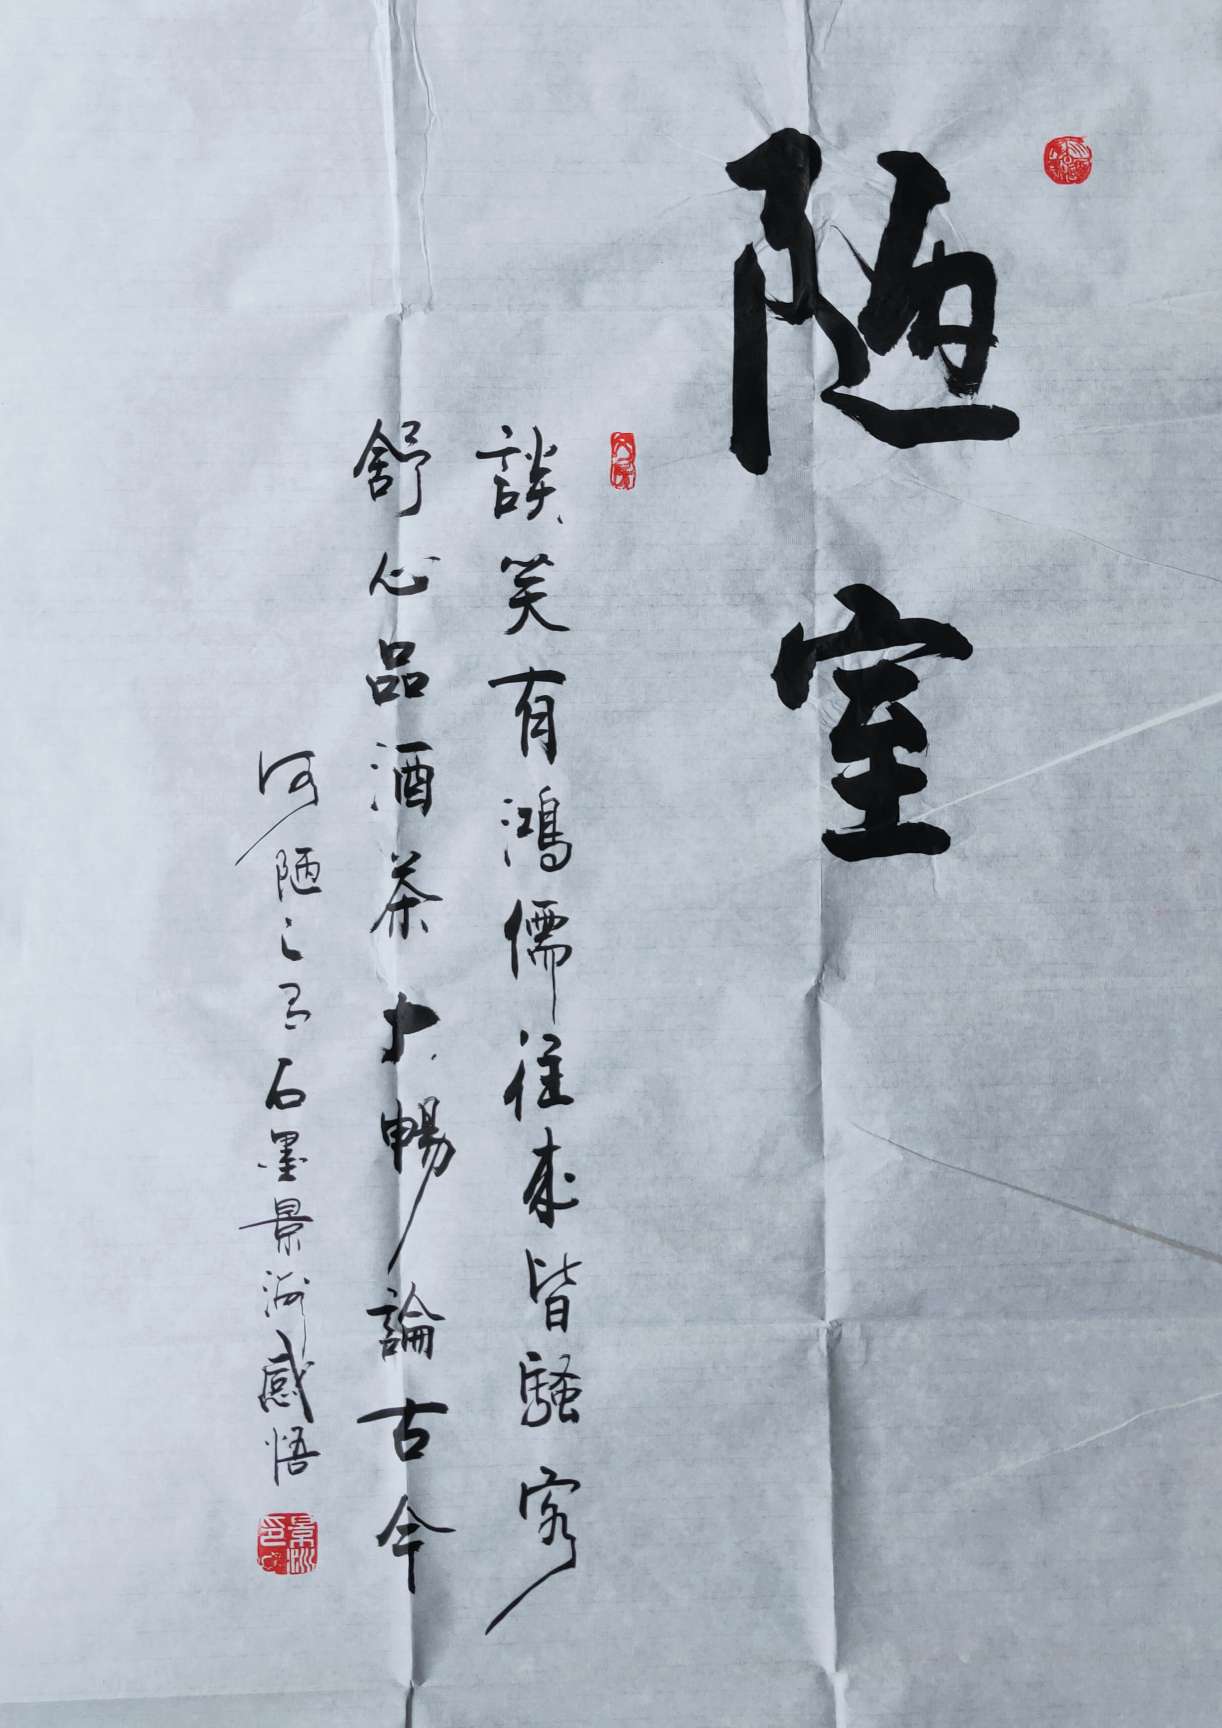 陋室
談笑有鴻儒往來皆騷客
舒心品酒茶大暢論古今
何陋之有石墨景洲感悟
景洲